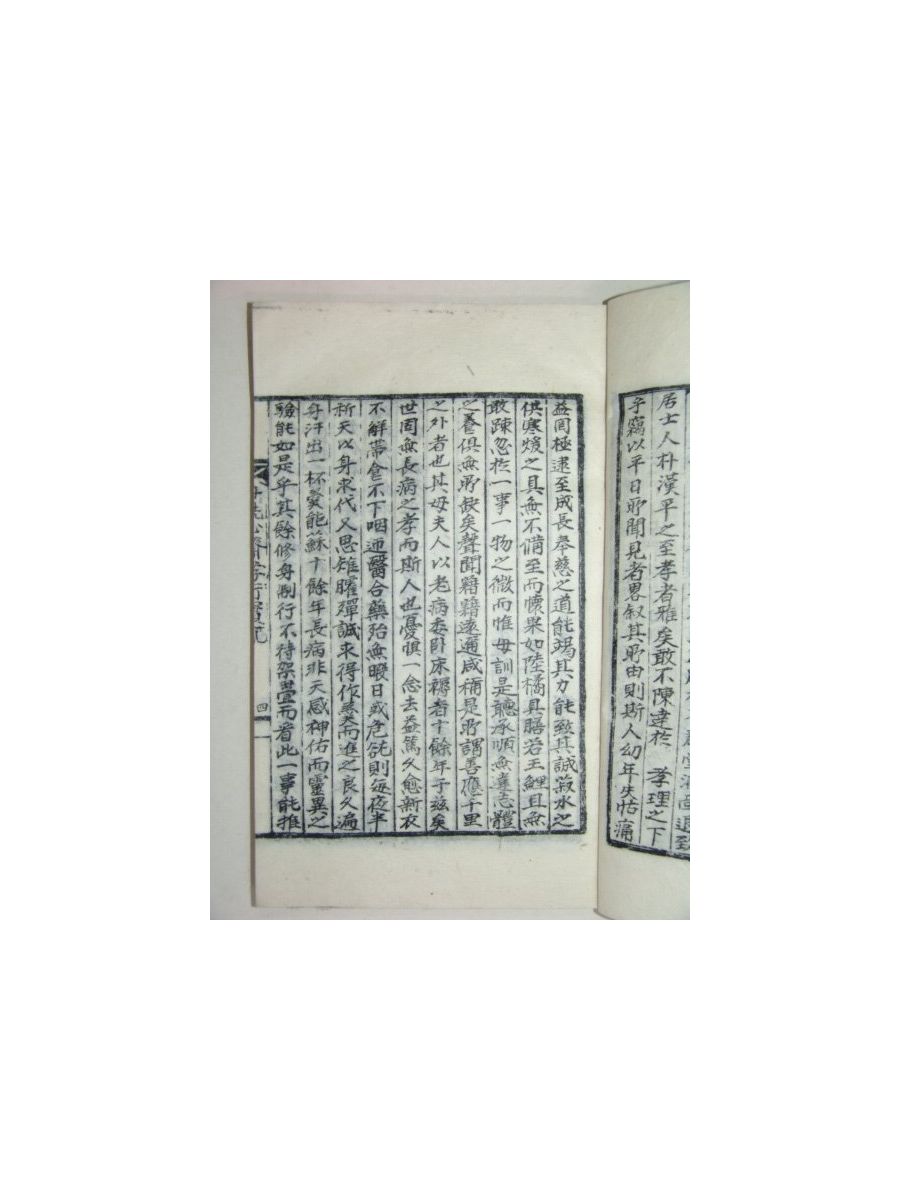 居士人朴漢平之至孝者雅矣敢不陳達於　孝理之下
乎竊以平日所聞見者畧叙其所由則斯人幼年失怙痛
益罔極逮至成長奉慈之道能竭其力能致其誠菽水之
供寒煖之具無不備至而懷果如陸橘具膳若王鯉且無
敢踈忽於一事一物之微而惟母訓是聽承順無違志軆
之養俱無所缺矣聲聞籍籍遠邇咸稱是所謂善應千里
之外者也其母夫人以老病委卧床褥者十餘年于兹矣
世固無長病之孝而斯人也憂惧一念去益篤久愈新衣
不解帶食不下咽迎醫合藥殆無暇日或危㞃則每夜半
祈天以身求代又思雉臛殫誠求得作羹而進之良久遍
身汗出一杯羹能蘇十餘年長病非天感神佑而靈異之
驗能如是乎其餘修身制行不待架疊而省此一事能推
行實
四